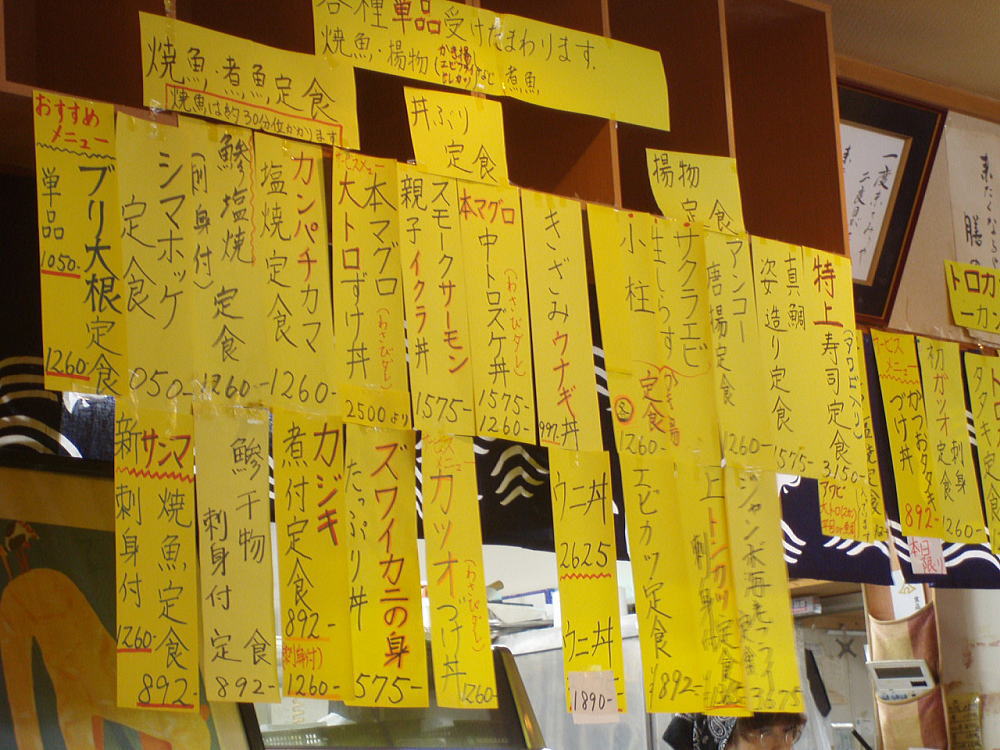 各種単品受けたまわります.
焼魚・揚物(かき揚 エビフライ ヒレカツ)など煮魚
焼魚・煮魚定食
焼魚は約30分位かかります
丼ぶり
定食
揚物
定食
おすすめ
メニュー
ブリ大根定食
単品
1050-
1260-
シマホッケ
定食
050-
鯵塩焼
(刺身付)
定食
1260-
カンパチカマ
塩焼定食
1260-
本マグロ
大トロずけ丼
(わさびダレ)
2500より
スモークサーモン
親子イクラ丼
1575-
本マグロ
中トロズケ丼
(わさびダレ)
1575-
1260-
きざみウナギ丼
997-
小柱
生しらす
サクラエビ
かき揚
定食
1260-
アンコー
唐揚定食
1260-
真鯛
姿造り定食
1575-
特上
寿司定食
(アワビ入り)
3150-
アワビ
サービス
メニュー
かつおタタキ
づけ丼
892-
本日
限り
初ガツオ
刺身
定食
1260-
タタキ定
トロカ
ーカ
新サンマ
焼魚定食
刺身付
1260-
892-
鯵干物
刺身付
定食
892-
カジキ
煮付定食
892-
(刺身付)
1260-
ズワイカニの身
たっぷり丼
575-
カツオ
つけ丼
(わさびダレ)
1260-
ウニ丼
2625
ウニ丼
1890-
エビカツ定食
¥892-
上トンカツ定食
ジャンボ海老フライ
定食